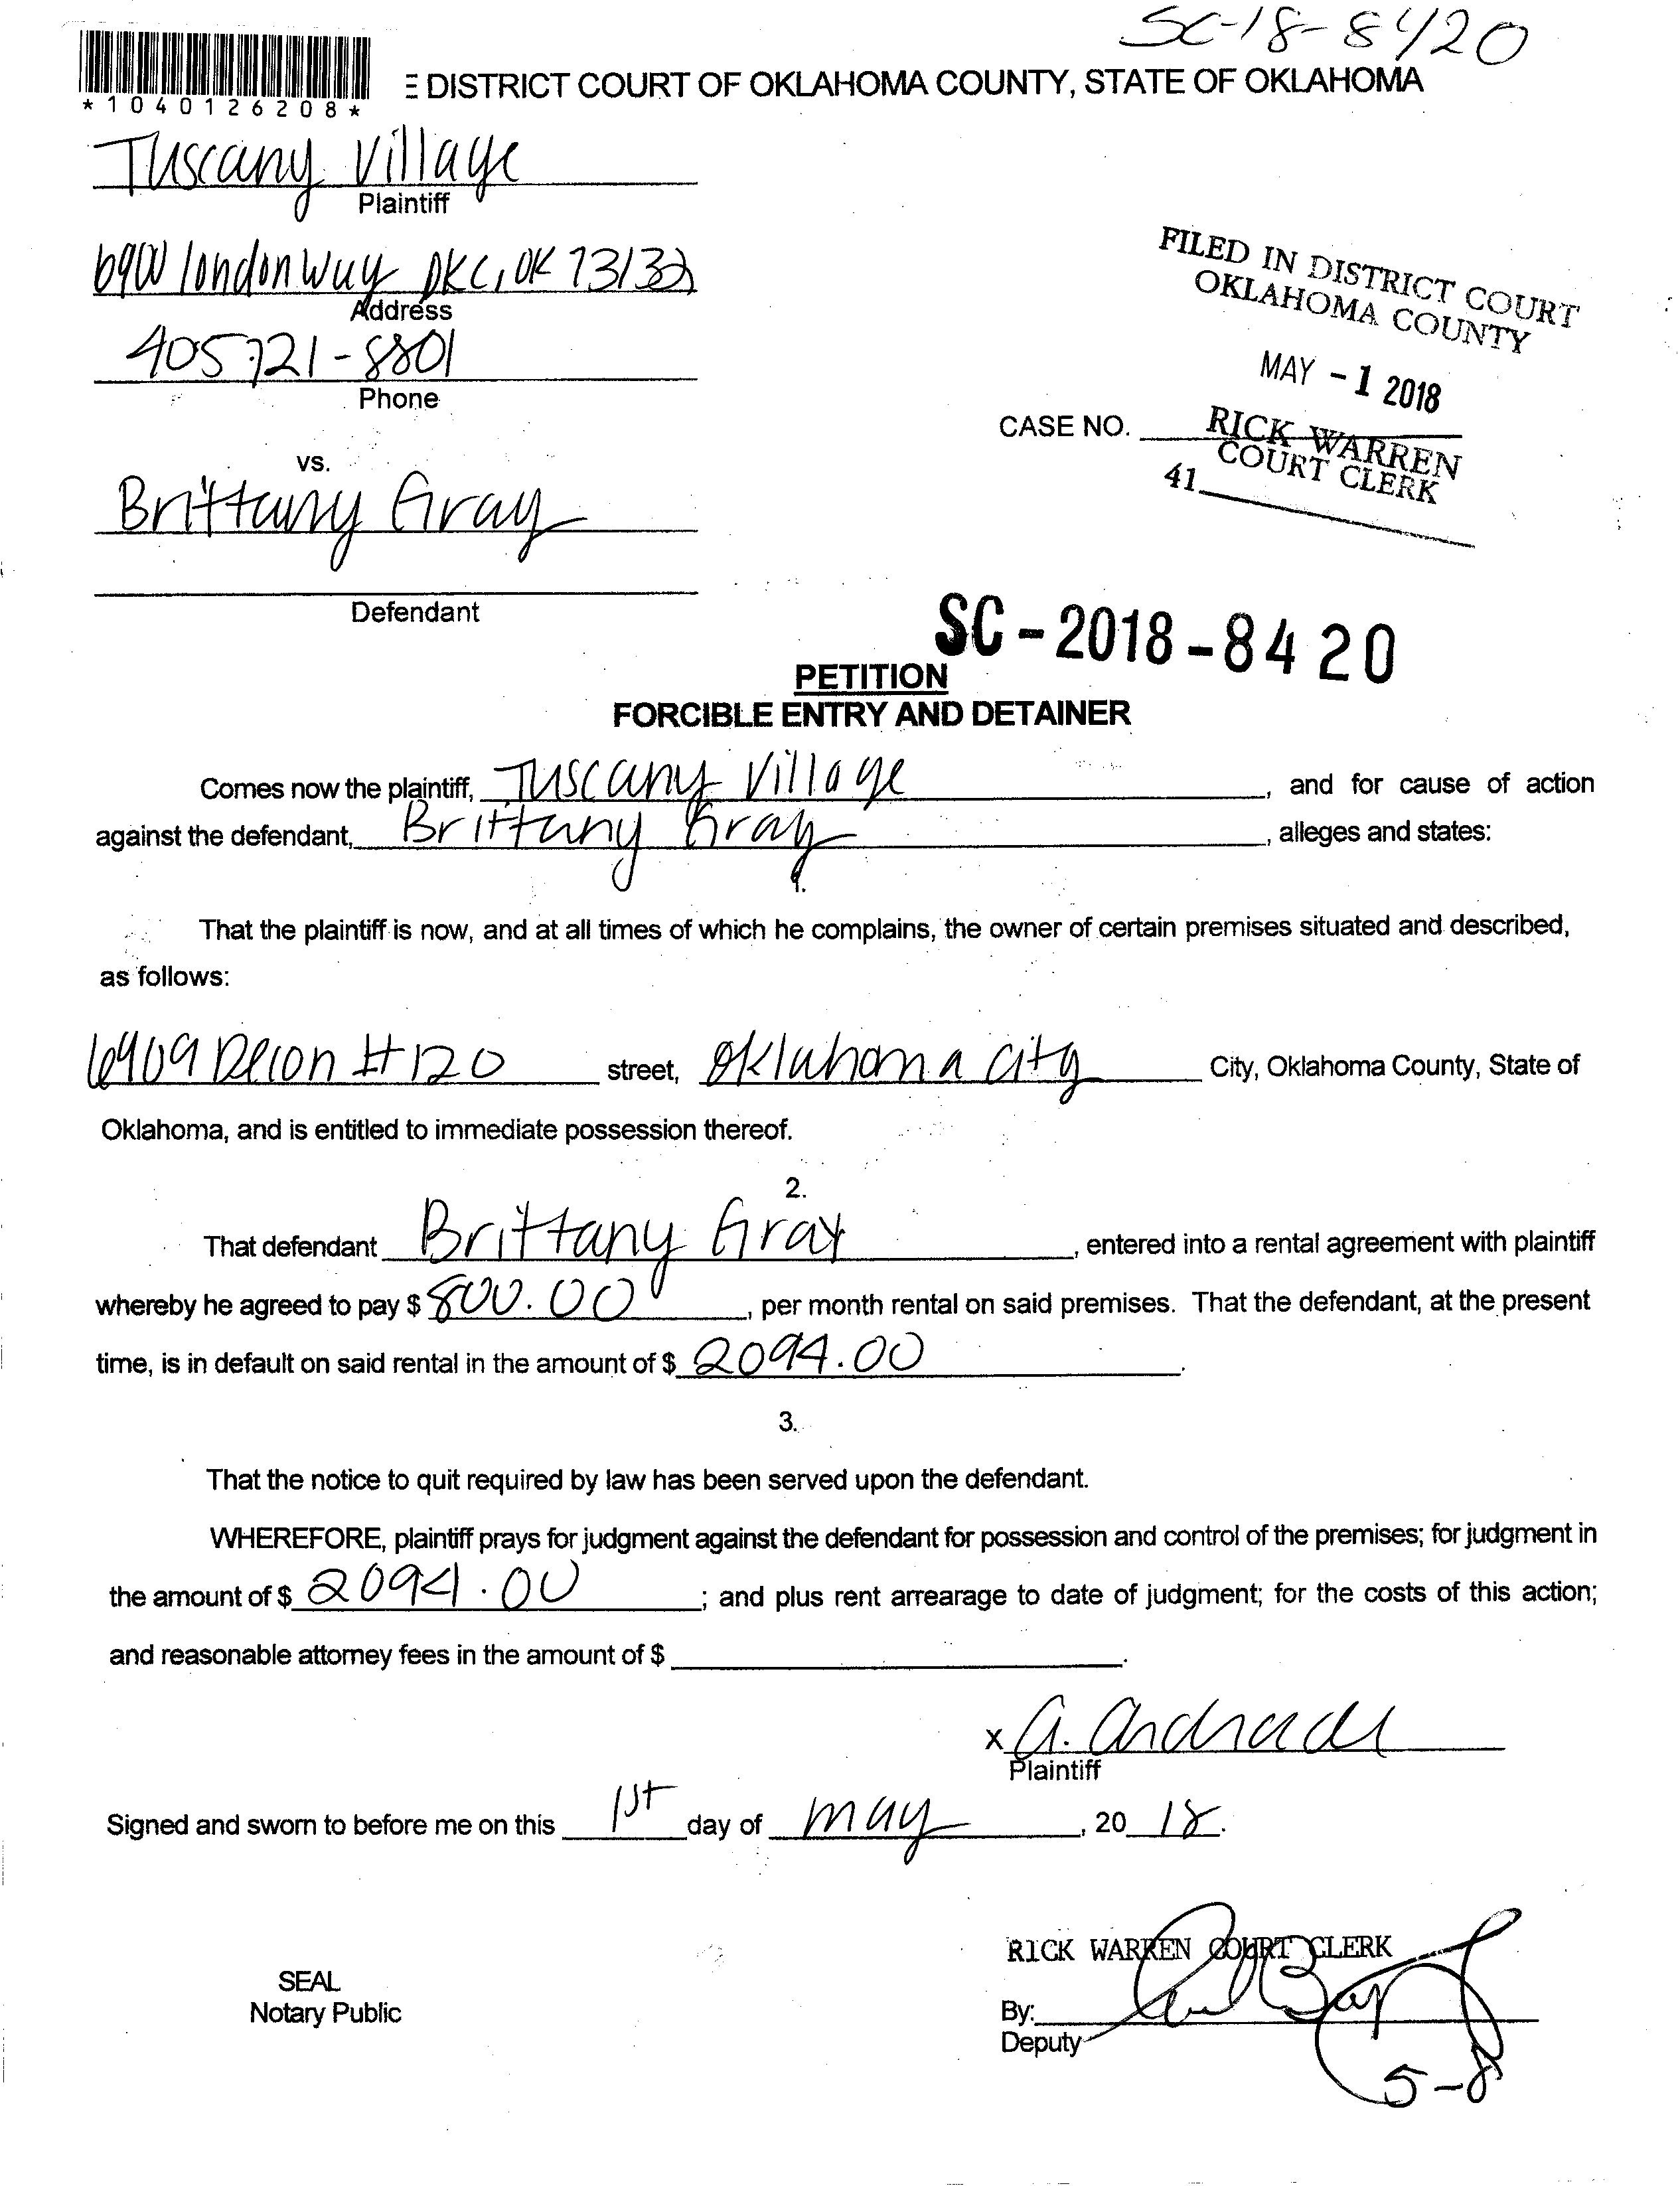 SC-18-8420
*1040126208*
E DISTRICT COURT OF OKLAHOMA COUNTY, STATE OF OKLAHOMA
Tuscany Village
Plaintiff
6900 london way OKC, OK 73132
Address
405 721-8801
Phone
FILED IN DISTRICT COURT
OKLAHOMA COUNTY
MAY -1 2018
CASE NO.
RICK WARREN
COURT CLERK
41
vs.
Brittany Gray
Defendant
SC-2018-8420
PETITION
FORCIBLE ENTRY AND DETAINER
Comes now the plaintiff, Tuscany Village, and for cause of action
against the defendant, Brittany Gray, alleges and states:
1.
That the plaintiff is now, and at all times of which he complains, the owner of certain premises situated and described,
as follows:
6909 #120 street, Oklahoma city City, Oklahoma County, State of
Oklahoma, and is entitled to immediate possession thereof.
2.
That defendant Brittany Gray, entered into a rental agreement with plaintiff
whereby he agreed to pay $ 800.00, per month rental on said premises. That the defendant, at the present
time, is in default on said rental in the amount of $ 2094.00.
3.
That the notice to quit required by law has been served upon the defendant.
WHEREFORE, plaintiff prays for judgment against the defendant for possession and control of the premises; for judgment in
the amount of $ 2094.00; and plus rent arrearage to date of judgment; for the costs of this action;
and reasonable attorney fees in the amount of $ .
x G. Andrade
Plaintiff
Signed and sworn to before me on this 1st day of may, 20 18.
RICK WARREN COURT CLERK
SEAL
Notary Public
By:
Deputy
5-8